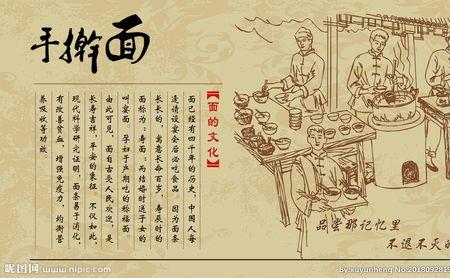 手擀面
【面的文化】
面已经有四千年的历史，中国人每
连请设宴会后必吃食品 因为面条
长长的，寓意长命百岁，寿辰时的
面称为：寿面；而结婚时送子女的
叫宴面，孕妇于产期吃的称福面
由此可见，面自古受人民欢迎，是
长寿吉祥，平安的象征 不仅如此，
现代科学研究证明，面条易于消化，
有改善贫血，增强免疫力，均衡营
养吸收等功效。
品尝那记忆里
不退不灭的
昵图网
www.nipic.com
By:xuyunheng No:2018092819